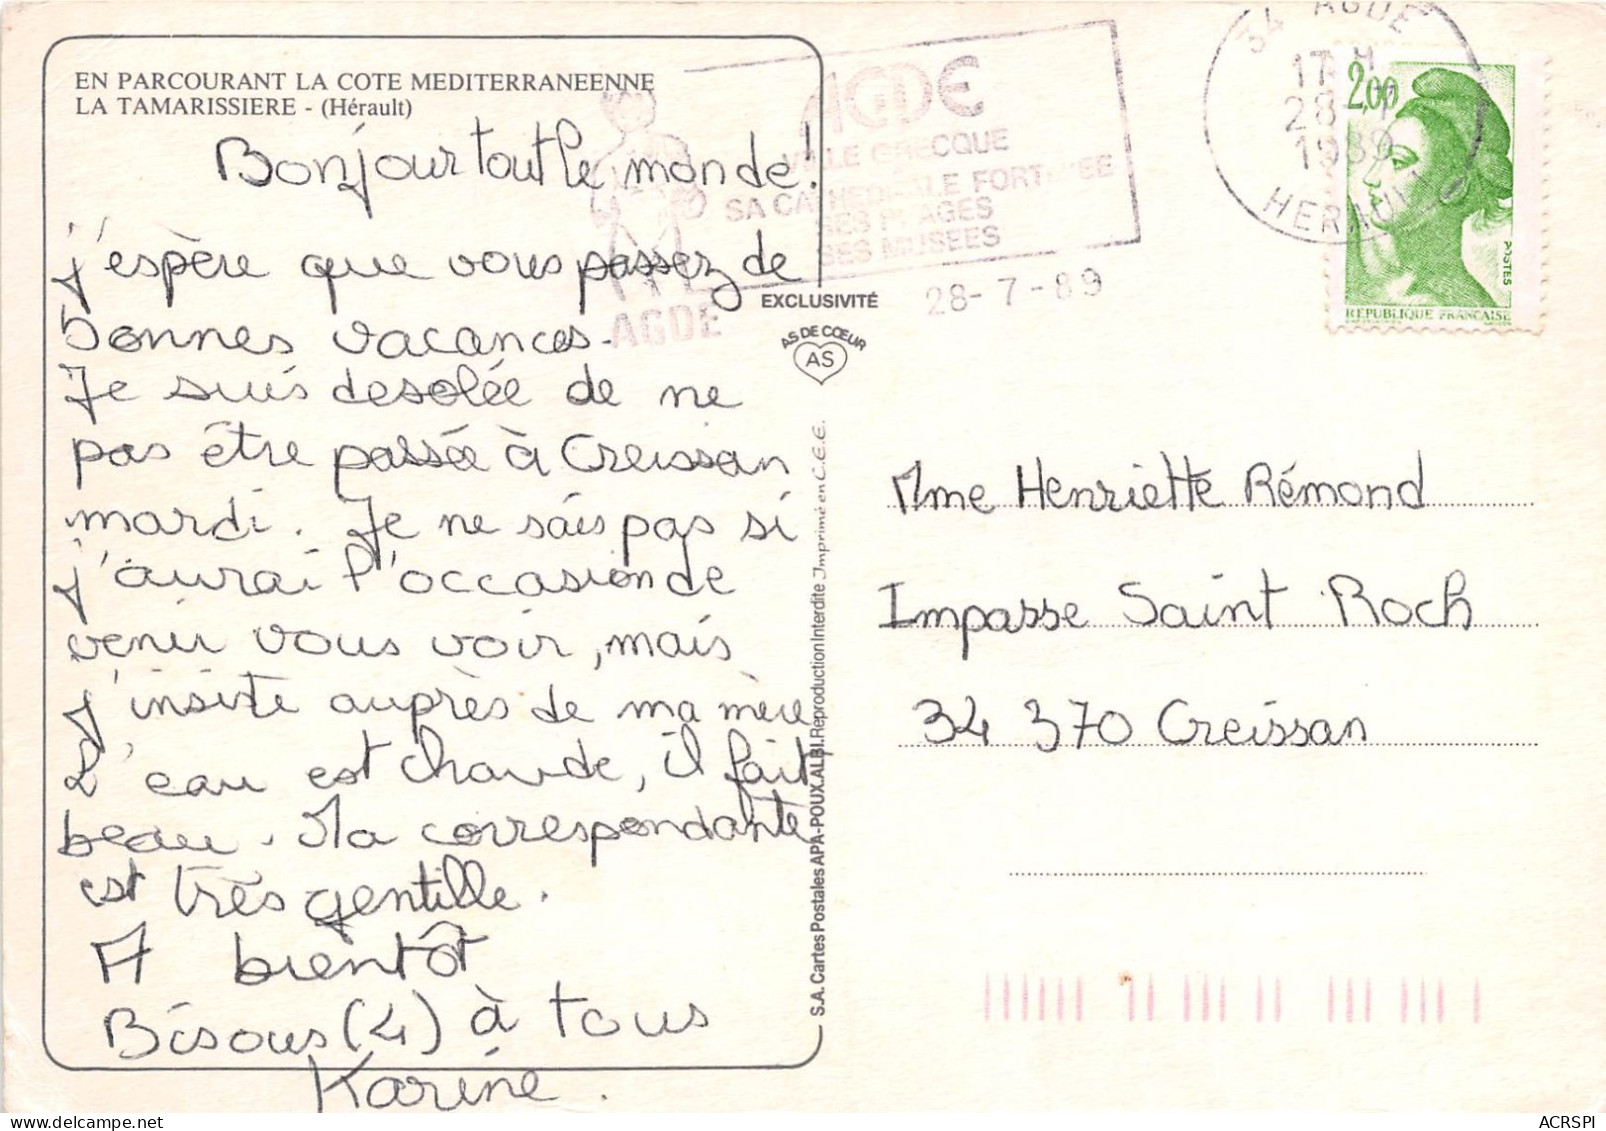 EN PARCOURANT LA COTE MEDITERRANEENNE
LA TAMARISSIERE - (Hérault)
Bonjour tout le monde!
j'espère que vous passez de
bonnes vacances.
Je suis desolée de ne
pas être passée à Creissan
mardi. Je ne sais pas si
j'aurai l'occasion de
venir vous voir, mais
j'insiste auprès de ma mère
L'eau est chaude, il fait
beau. Ma correspondante
est très gentille.
A bientôt
Bisous (4) à tous
Karine.
AGDE
AGDE
VILLE GRECQUE
SA CATHEDRALE FORTIFIEE
SES PLAGES
SES MUSEES
28-7-89
34 AGDE
17 H
28-7
1989
HERAULT
2,00
POSTES
REPUBLIQUE FRANCAISE
EXCLUSIVITÉ
AS DE CŒUR
AS
S.A. Cartes Postales APA-POUX.ALBI.Reproduction Interdite Imprimé en C.E.E.
Mme Henriette Rémond
Impasse Saint Roch
34 370 Creissan
ACRSPI